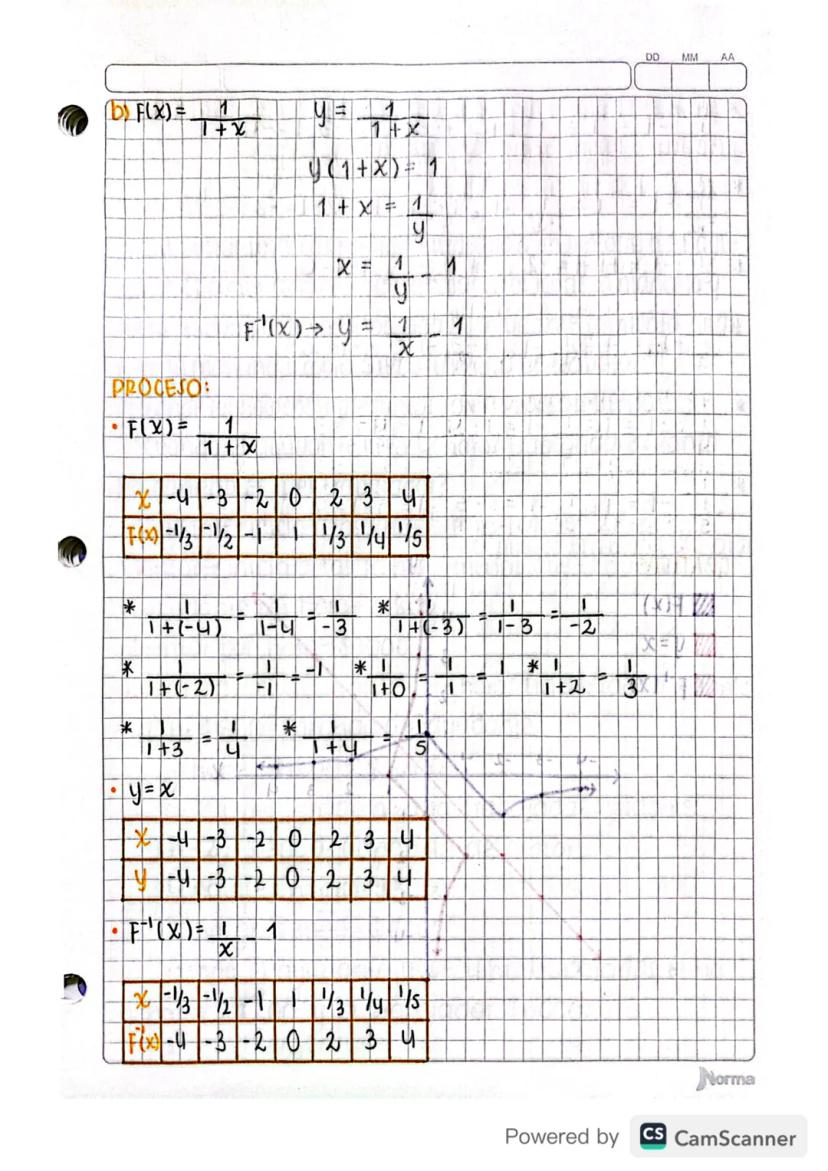 DD MM AA
b) F(x) = 1/(1 + x)   y = 1/(1 + x)
y(1+x) = 1
1 + x = 1/y
x = 1/y - 1
F⁻¹(x) → y = 1/x - 1
PROCESO:
• F(x) = 1/(1 + x)
x -4 -3 -2 0 2 3 4
F(x) -1/3 -1/2 -1 1 1/3 1/4 1/5
* 1/(1+(-4)) = 1/(1-4) = 1/-3   * 1/(1+(-3)) = 1/(1-3) = 1/-2
* 1/(1+(-2)) = 1/-1 = -1   * 1/(1+0) = 1/1 = 1   * 1/(1+2) = 1/3
* 1/(1+3) = 1/4   * 1/(1+4) = 1/5
• y=x
x -4 -3 -2 0 2 3 4
y -4 -3 -2 0 2 3 4
• F⁻¹(x) = 1/x - 1
x -1/3 -1/2 -1 1 1/3 1/4 1/5
F⁻¹(x) -4 -3 -2 0 2 3 4
Norma
Powered by CS CamScanner